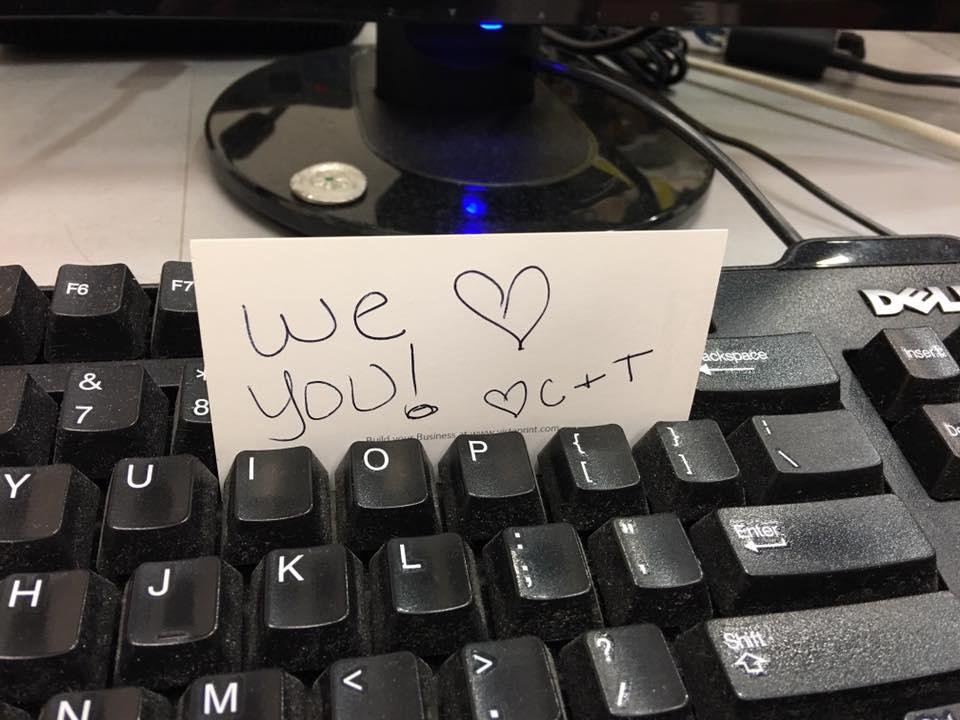 F6
F7
DELL
We ♡
you!
♡ C + T
Build your Business at www.vistaprint.com
ackspace
Insert
De
&
7
*
8
Y
U
I
O
P
{
[
}
]
|
\
H
J
K
L
:
;
"
'
Enter
N
M
<
>
.
?
/
Shift